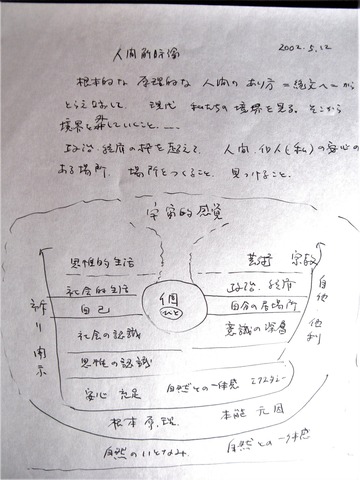 人間解剖像 2002.5.12
根本的な 原理的な 人間の あり方 = 縄文へ = から
とらえなおして、現代 私たちの 境界を見る。そこから
境界を 探していくこと、……
政治・経済の枠を超えて、人間、個人(私)の安心の
ある場所、場所をつくること、見つけること、
宇宙的感覚
思惟的生活
芸術 宗教
社会的生活
個
ひと
政治、経済
自己
自分の居場所
社会の認識
意識の深層
思惟の認識
祈り 開示
自他 他利
安心 充足
自然との一体感 エクスタシー
根本原理
本能 元因
自然のいとなみ
自然との一体感